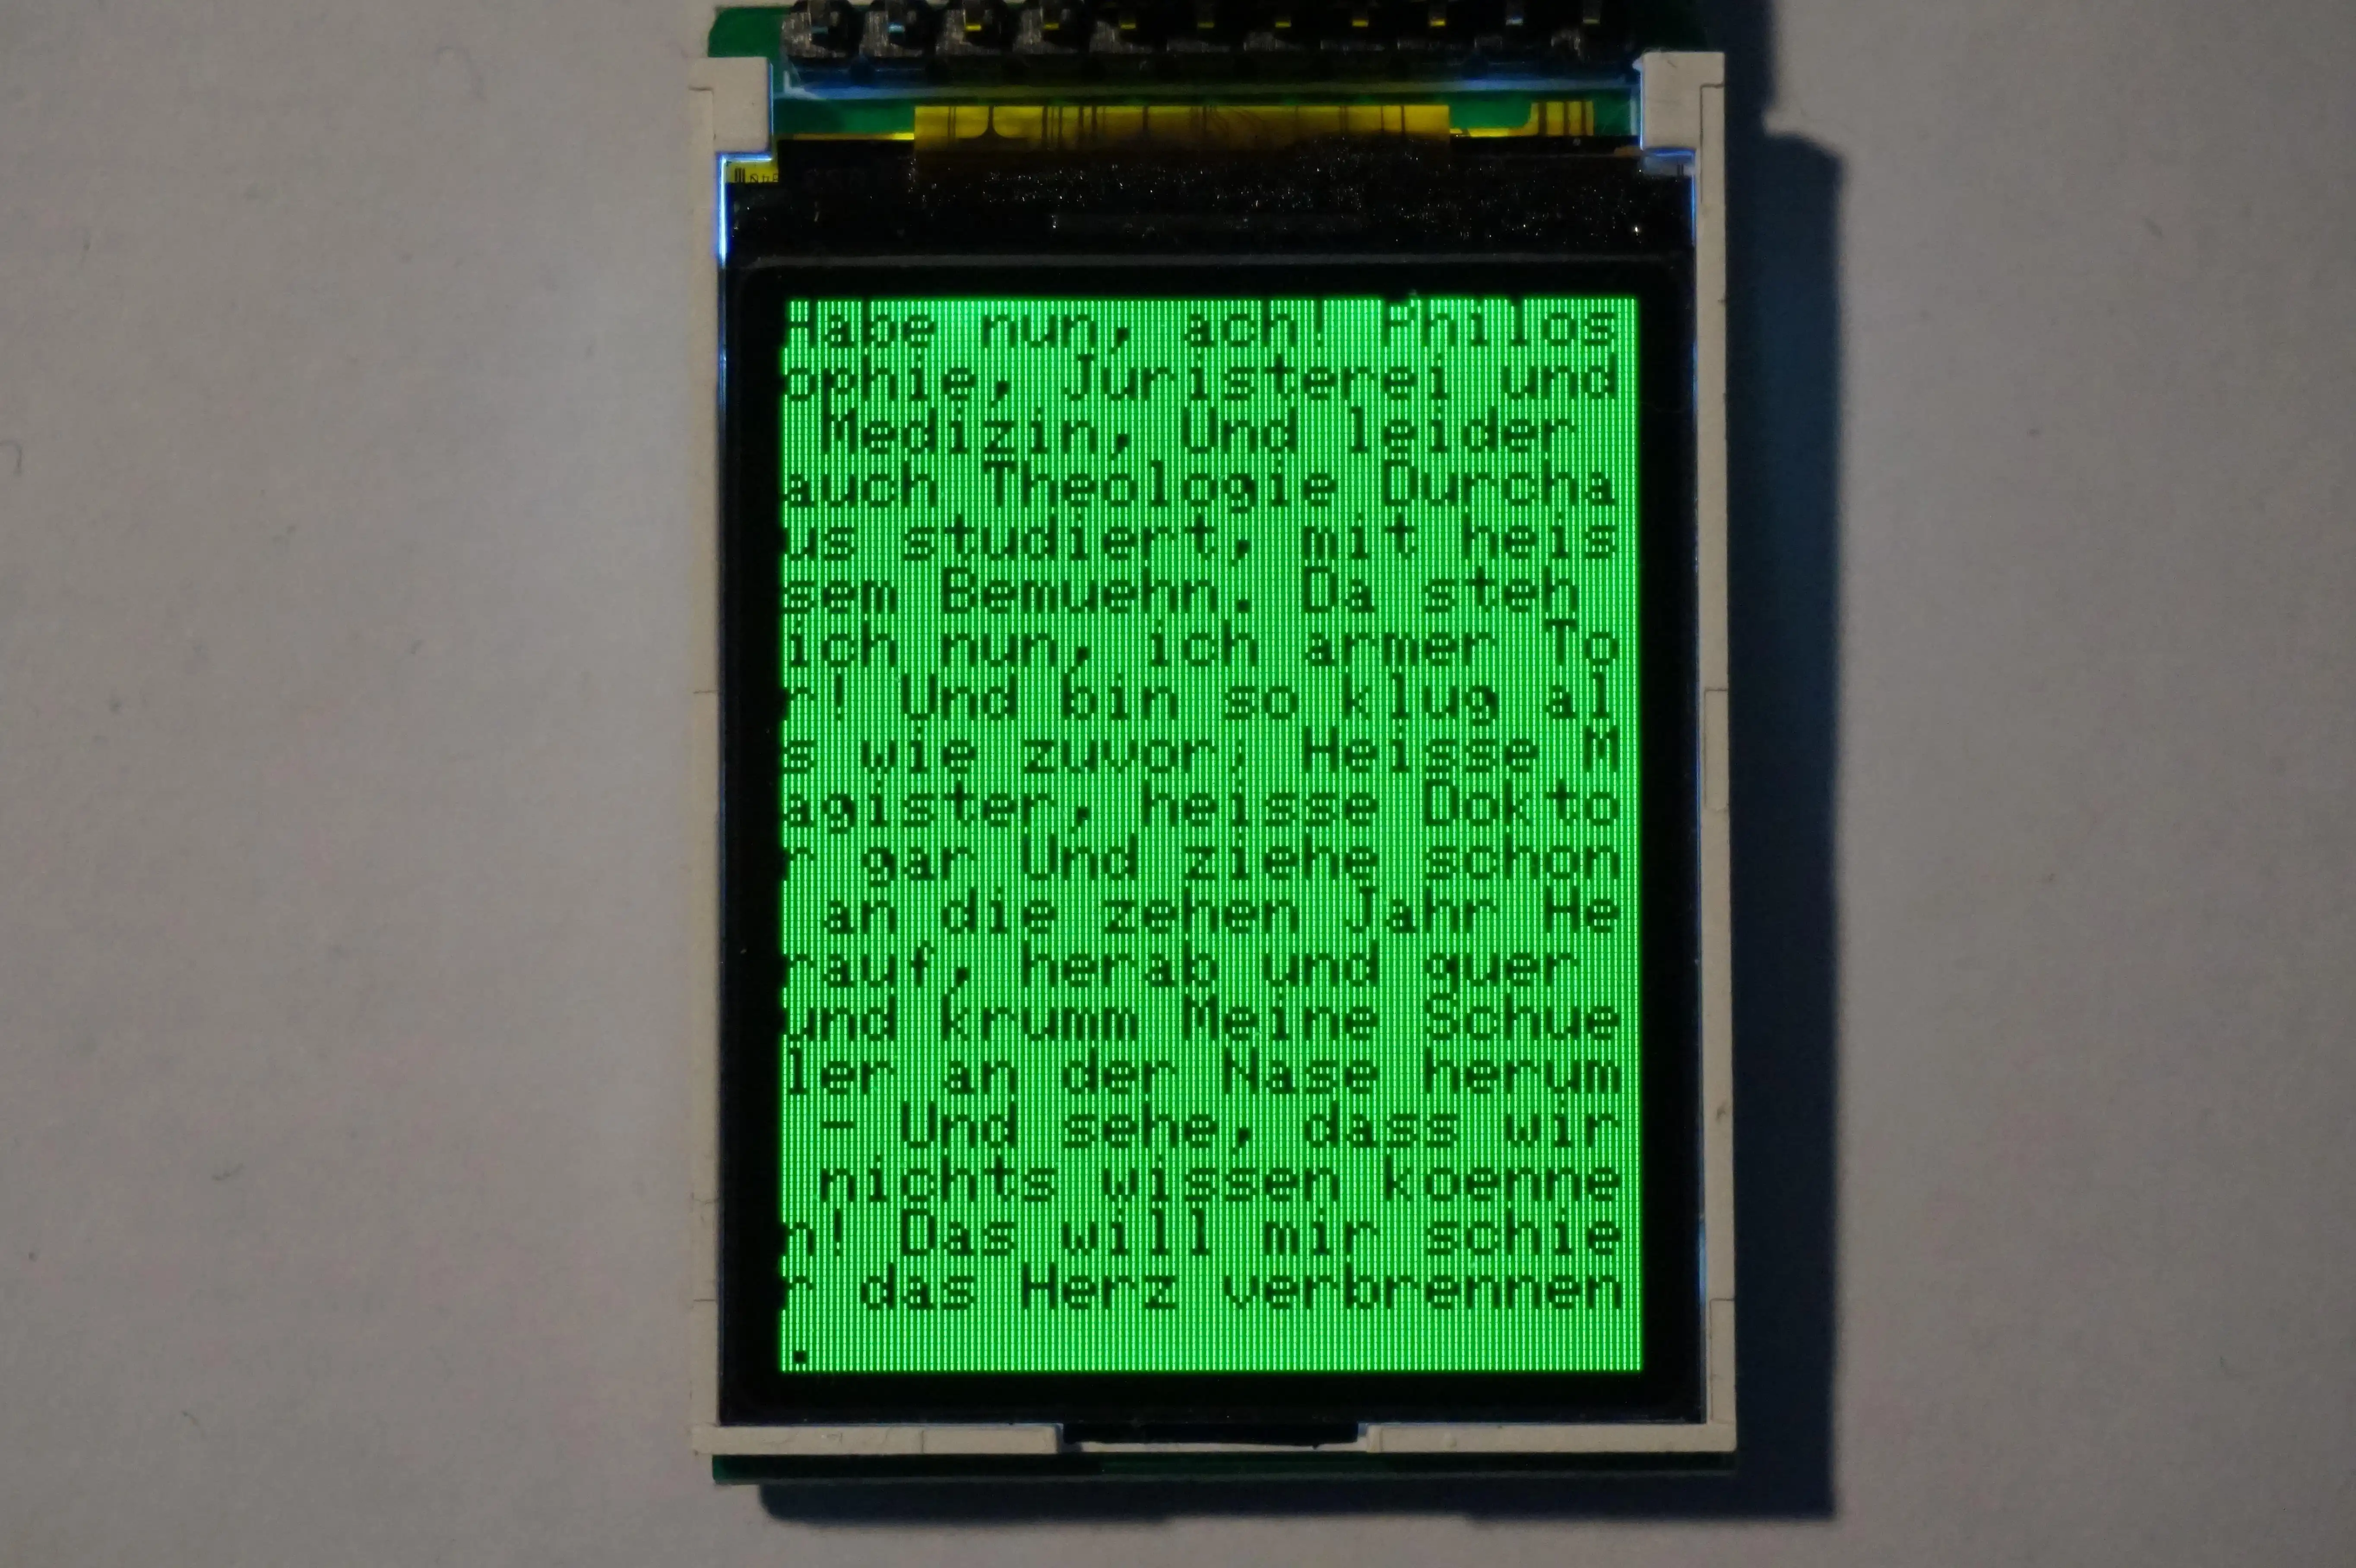 Habe nun, ach! Philos
ophie, Juristerei und
Medizin, Und leider
auch Theologie Durcha
us studiert, mit heis
sem Bemuehn. Da steh
ich nun, ich armer To
r! Und bin so klug al
s wie zuvor; Heisse M
agister, heisse Dokto
r gar Und ziehe schon
an die zehen Jahr He
rauf, herab und quer
und krumm Meine Schue
ler an der Nase herum
- Und sehe, dass wir
nichts wissen koenne
n! Das will mir schie
r das Herz verbrennen
.